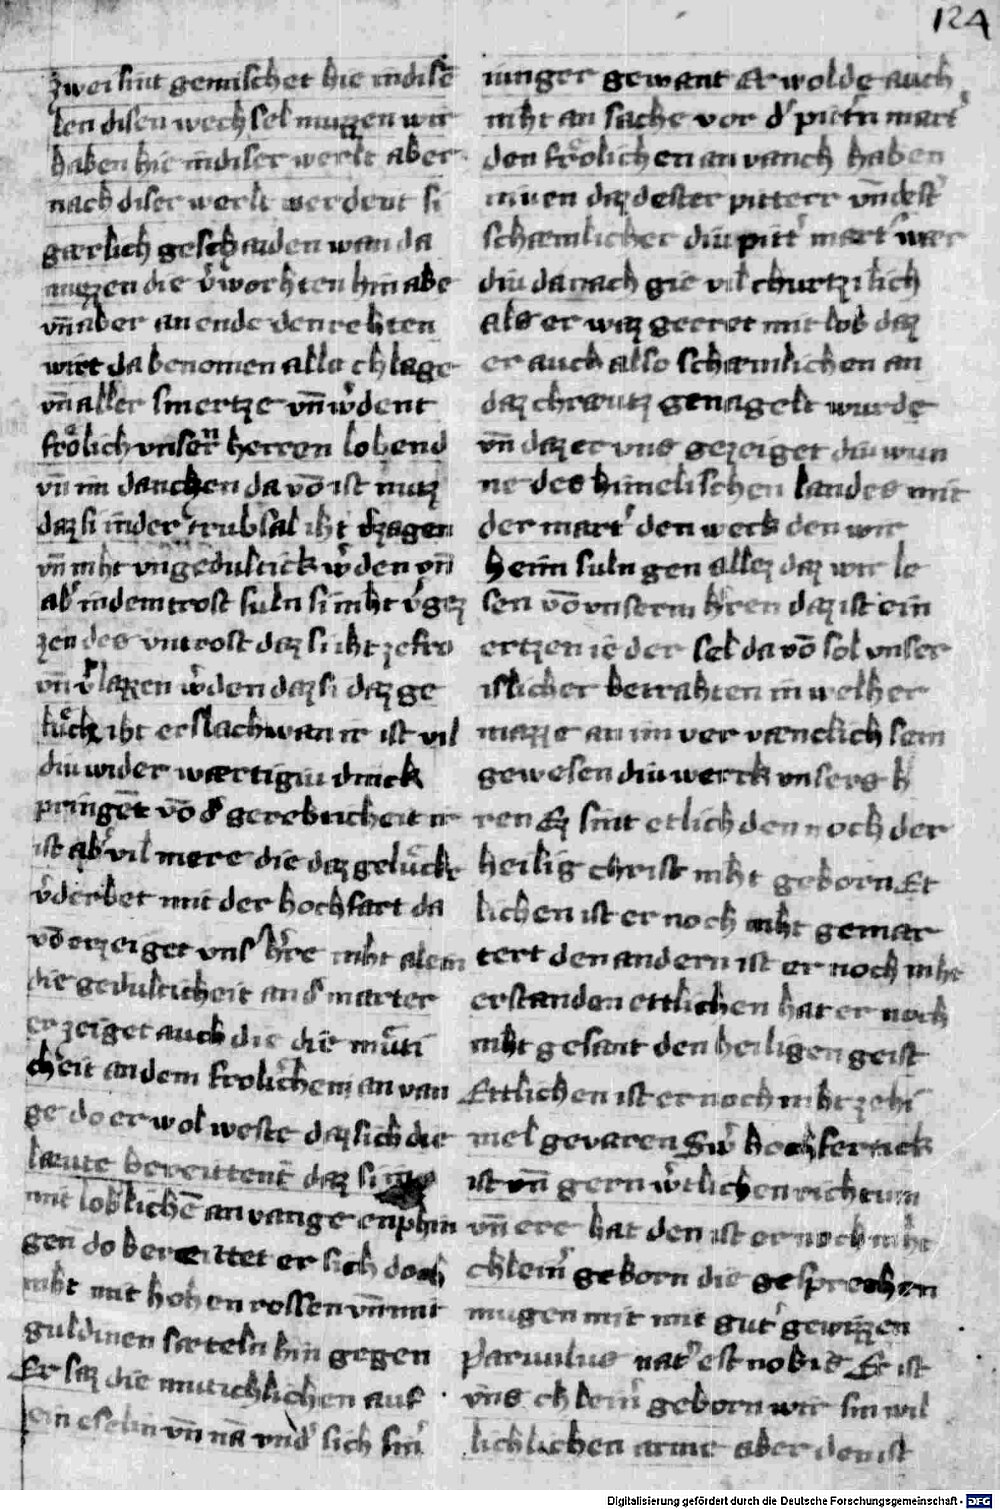 124
zwei sint gemischet hie in diser
len disen wechsel muzzen wir
haben hie in diser werlt aber
nach diser werlt werdent si
gærlich geschaiden wan da
muzzen die v̾worhten hin abe
vn̄ aber an ende den rehten
wirt da benomen alle chlage
vn̄ aller smertze vn̄ w̾dent
frölich vnsern herren lobend
vn̄ im danchen da vō ist nutz
daz si in der trubsal iht v̾zagen
vn̄ niht vngedultick w̾den vn̄
ab̾ in dem trost suln si niht v̾gez
zen des vntrost daz si iht ze fro
vn̄ v̾lazzen w̾den daz si daz ge
lück iht erslach wan ir ist vil
diu wider wærtigiu dinck
pringēt vō d̾ gerehticheit ir
ist ab̾ vil mere die daz gelücke
v̾derbet mit der hochfart da
vō erzeiget vns h̾re niht alein
die gedulticheit an d̾ marter
er zeiget auch die die müti
cheit an dem frolichem an van
ge do er wol weste daz sich die
læute bereittent daz si in
mit loblichē an vange enphin
gen do bereittet er sich doch
niht mit hohen rossen vn̄ mit
guldinen sæteln hin gegen
Er saz die mutichlichen auf
ein eselin vn̄ nā vnd̾ sich sin̾
iunger gewant Er wolde auch
niht an sache vor d̾ pittn̾ mart̾
den frölichen an vanch haben
niuen daz dester pitterr vn̄ dest̾
schæmlicher diu pitt̾ mart̾ wær
diu da nach gie vil churtzilich
als er waz geeret mit lob daz
er auch also schæmlichen an
daz chræutz genagelt wurde
vn̄ daz er vns gezeiget diu wun
ne des himelischen landes mit
der mart̾ den werk den wir
heim suln gen allez daz wir le
sen vō vnserm h̾ren daz ist ein
ertzenie der sel da vō sol vnser
islicher betrahten in welher
mazze an im ver vænclich sein
gewesen diu werck vnsers h̾
ren Ez sint etlich den noch der
heilig christ niht geborn Et
lichen ist er noch niht gemar
tert den andern ist er noch niht
erstanden ettlichen hat er noch
niht gesant den heiligen geist
Ettlichen ist er noch niht ze hi
mel gevaren Sw̾ hochfertick
ist vn̄ gern w̾tlichen richtum
vn̄ ere hat den ist er noch niht
chlein̾ geborn die gesprechen
mugen mit mit gut̾ gewizzen
Paruulus nat̾ est nobis Er ist
vns chlein̾ geborn wir sin wil
lichlichen arme aber den ist
Digitalisierung gefördert durch die Deutsche Forschungsgemeinschaft - DFG